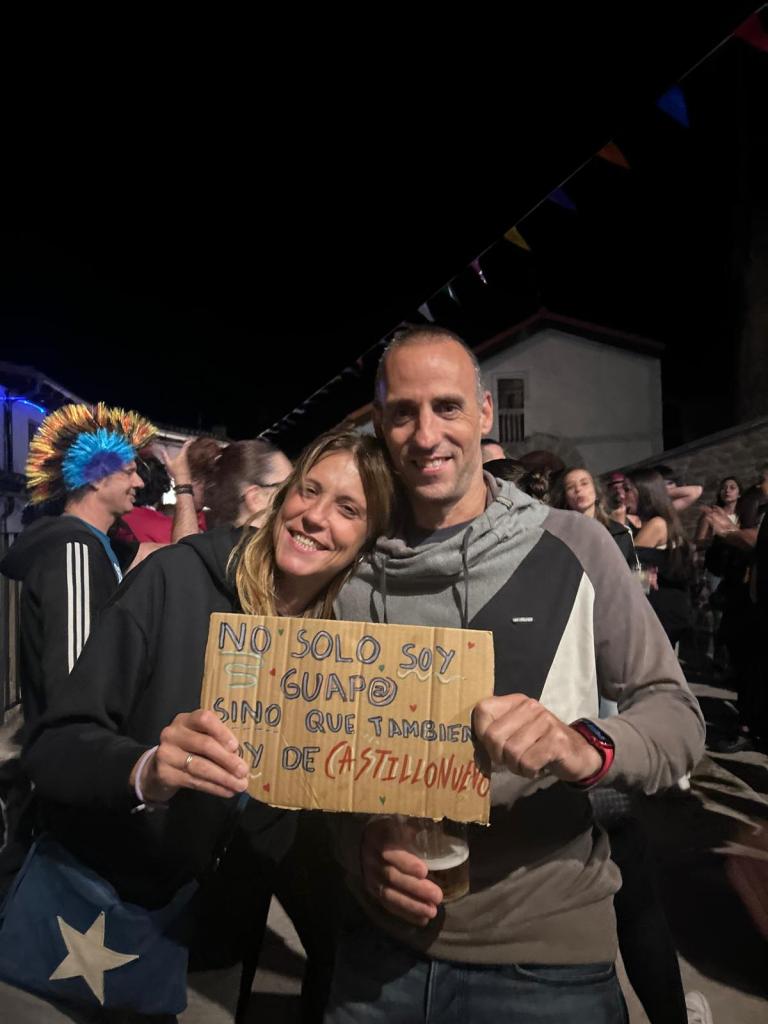 NO SOLO SOY
GUAP@
SINO QUE TAMBIEN
OY DE CASTILLONUEVO